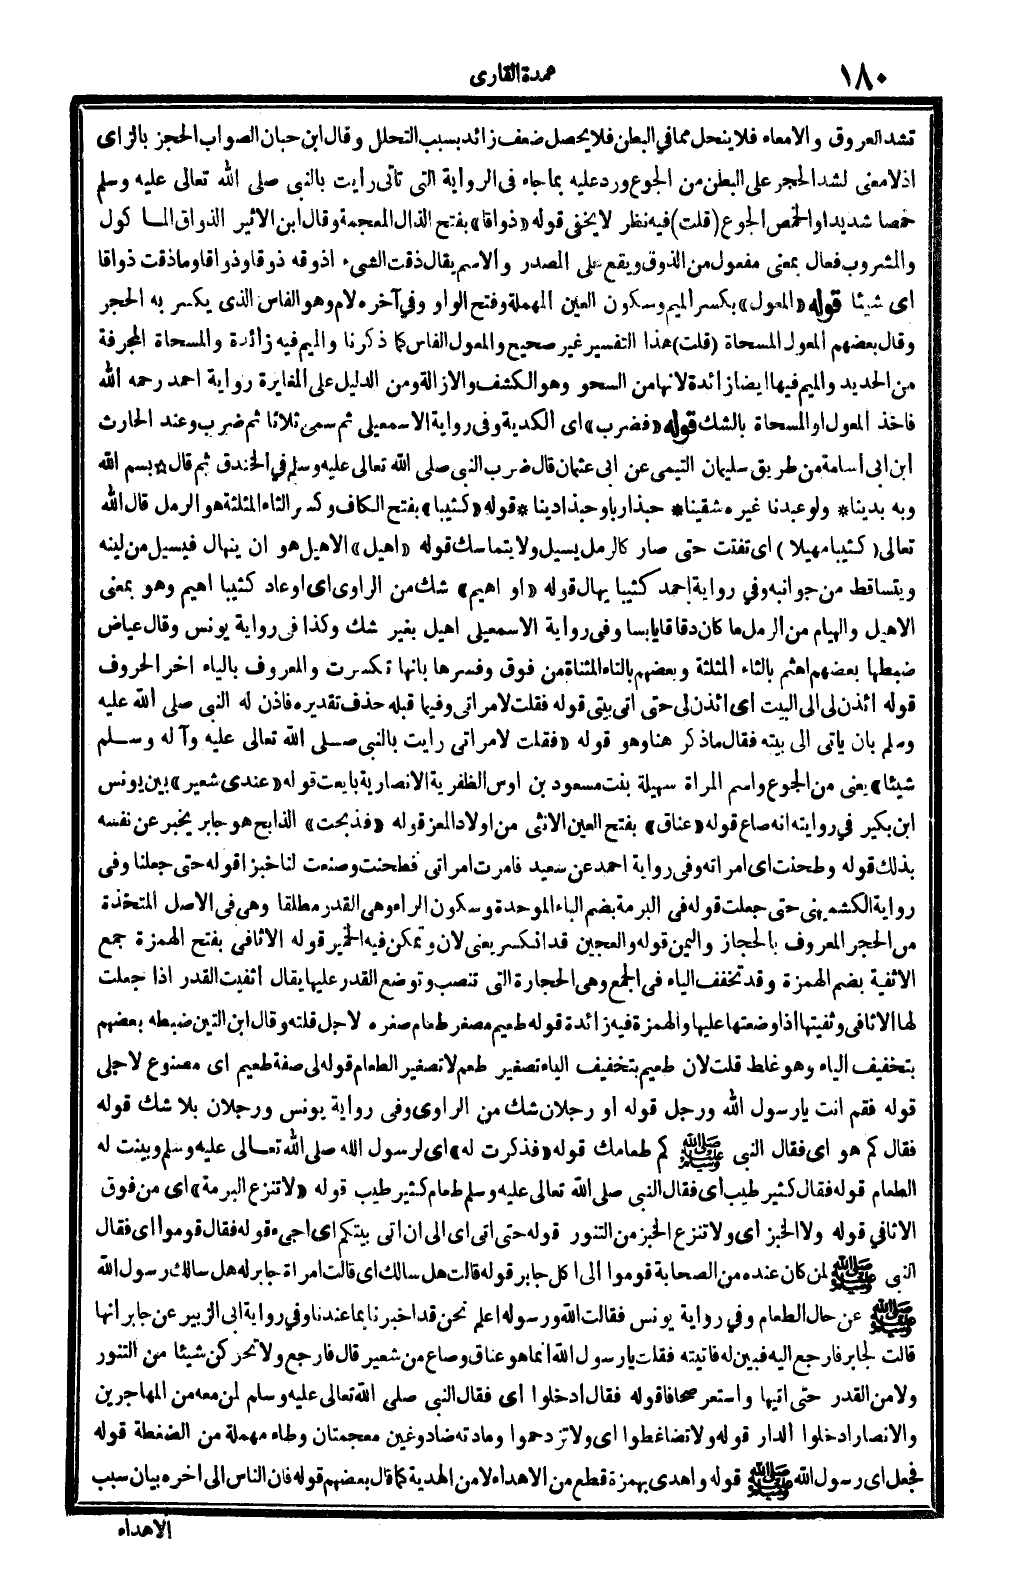 ١٨٠
عمدة القارى
تشد العروق والامعاء فلا ينحل مما في البطن فلا يحصل ضعف زائد بسبب التحلل وقال ابن حبان الصواب الحجز بالزاى
اذ لا معنى لشد الحجر على البطن من الجوع ورد عليه بما جاء فى الرواية التى تأتى رايت بالنبى صلى الله تعالى عليه وسلم
خمصا شديدا والخمص الجوع (قلت) فيه نظر لا يخفى قوله «ذواقا» بفتح الذال المعجمة وقال ابن الاثير الذواق المأكول
والمشروب فعال بمعنى مفعول من الذوق ويقع على المصدر والاسم يقال ذقت الشىء اذوقه ذوقا وذواقا وما ذقت ذواقا
اى شيئا قوله «المعول» بكسر الميم وسكون العين المهملة وفتح الواو وفي آخره لام وهو الفاس الذى يكسر به الحجر
وقال بعضهم المعول المسحاة (قلت) هذا التفسير غير صحيح والمعول الفاس كما ذكرنا والميم فيه زائدة والمسحاة المجرفة
من الحديد والميم فيها ايضا زائدة لانها من السحو وهو الكشف والازالة ومن الدليل على المغايرة رواية احمد رحمه الله
فاخذ المعول او المسحاة بالشك قوله «فضرب» اى الكدية وفى رواية الاسمعيلى ثم سمى ثلاثا ثم ضرب وعند الحارث
ابن ابى أسامة من طريق سليمان التيمى عن ابى عثمان قال ضرب النبى صلى الله تعالى عليه وسلم في الخندق ثم قال * بسم الله
وبه بدينا * ولو عبدنا غيره شقينا * حبذا ربا وحبذا دينا * قوله «كثيبا» بفتح الكاف وكسر الثاء المثلثة هو الرمل قال الله
تعالى (كثيبا مهيلا) اى تفتت حتى صار كالرمل يسيل ولا يتماسك قوله «اهيل» الاهيل هو ان ينهال فيسيل من لينه
ويتساقط من جوانبه وفي رواية احمد كثيبا يهال قوله «او اهيم» شك من الراوى اى اوعاد كثيبا اهيم وهو بمعنى
الاهيل والهيام من الرمل ما كان دقاقا يابسا وفى رواية الاسمعيلى اهيل بغير شك وكذا فى رواية يونس وقال عياض
ضبطها بعضهم اهثم بالثاء المثلثة وبعضهم بالتاء المثناة من فوق وفسرها بانها تكسرت والمعروف بالياء اخر الحروف
قوله ائذن لى الى البيت اى ائذن لى حتى اتى بيتى قوله فقلت لامراتى وفيها قبله حذف تقديره فاذن له النبى صلى الله عليه
وسلم بان ياتى الى بيته فقال ما ذكر هنا وهو قوله «فقلت لامراتى رايت بالنبى صلى الله تعالى عليه وآله وسلم
شيئا» يعنى من الجوع واسم المراة سهيلة بنت مسعود بن اوس الظفرية الانصارية بايعت قوله «عندى شعير» بين يونس
ابن بكير في روايته انه صاع قوله «عناق» بفتح العين الانثى من اولاد المعز قوله «فذبحت» الذابح هو جابر يخبر عن نفسه
بذلك قوله وطحنت اى امراته وفى رواية احمد عن سعيد فامرت امراتى فطحنت وصنعت لنا خبزا قوله حتى جعلنا وفى
رواية الكشميهنى حتى جعلت قوله فى البرمة بضم الباء الموحدة وسكون الراء وهى القدر مطلقا وهى فى الاصل المتخذة
من الحجر المعروف بالحجاز واليمن قوله والعجين قد انكسر يعنى لان وتمكن فيه الخمير قوله الاثافى بفتح الهمزة جمع
الاثفية بضم الهمزة وقد تخفف الياء فى الجمع وهى الحجارة التى تنصب وتوضع القدر عليها يقال أثفيت القدر اذا جعلت
لها الاثافى وثفيتها اذا وضعتها عليها والهمزة فيه زائدة قوله طعيم مصغر طعام صغره لاجل قلته وقال ابن التين ضبطه بعضهم
بتخفيف الياء وهو غلط قلت لان طعيم بتخفيف الياء تصغير طعم لا تصغير الطعام قوله لى صفة طعيم اى مصنوع لاجلى
قوله فقم انت يارسول الله ورجل قوله او رجلان شك من الراوى وفى رواية يونس ورجلان بلا شك قوله
فقال كم هو اى فقال النبى ﷺ كم طعامك قوله «فذكرت له» اى لرسول الله صلى الله تعالى عليه وسلم وبينت له
الطعام قوله فقال كثير طيب اى فقال النبى صلى الله تعالى عليه وسلم طعام كثير طيب قوله «لا تنزع البرمة» اى من فوق
الاثافي قوله ولا الخبز اى ولا تنزع الخبز من التنور قوله حتى اتى اى الى ان اتى بيتكم اى اجىء قوله فقال قوموا اى فقال
النبى ﷺ لمن كان عنده من الصحابة قوموا الى اكل جابر قوله قالت هل سالك اى قالت امراة جابر له هل سالك رسول الله
ﷺ عن حال الطعام وفي رواية يونس فقالت الله ورسوله اعلم نحن قد اخبرنا بما عندنا وفي رواية ابى الزبير عن جابر انها
قالت لجابر فارجع اليه فبين له فاتيته فقلت يارسول الله انما هو عناق وصاع من شعير قال فارجع ولا تحركن شيئا من التنور
ولا من القدر حتى اتيها واستعر صحافا قوله فقال ادخلوا اى فقال النبى صلى الله تعالى عليه وسلم لمن معه من المهاجرين
والانصار ادخلوا الدار قوله ولا تضاغطوا اى ولا تزدحموا ومادته ضاد وغين معجمتان وطاء مهملة من الضغطة قوله
فجعل اى رسول الله ﷺ قوله واهدى بهمزة قطع من الاهداء لا من الهدية كما قال بعضهم قوله فان الناس الى اخره بيان سبب
الاهداء